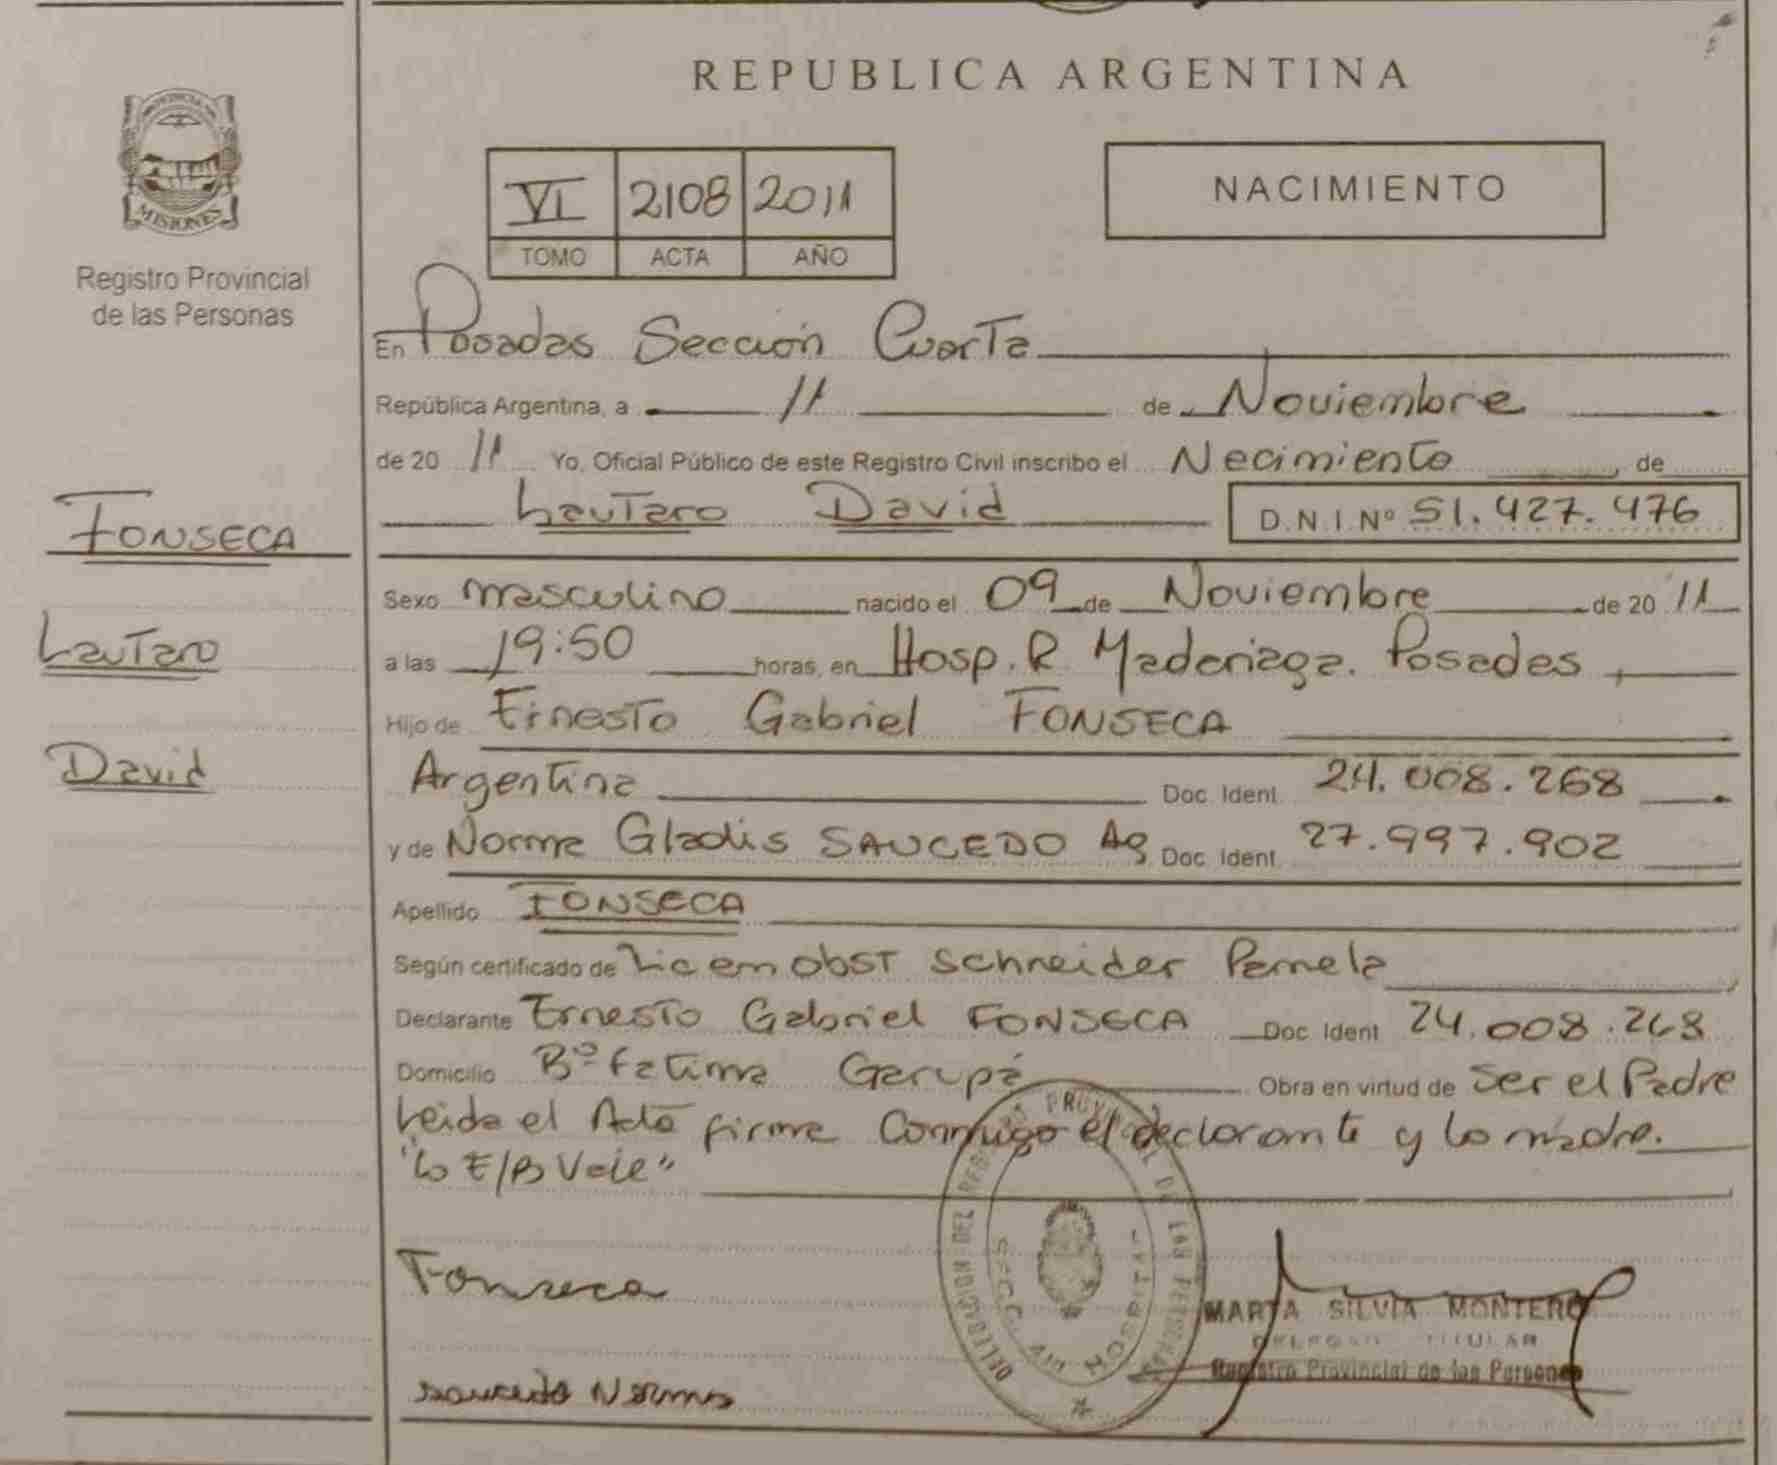 REPUBLICA ARGENTINA
MISIONES
Registro Provincial
de las Personas
VI 2108 2011
TOMO ACTA AÑO
NACIMIENTO
En Posadas Sección Cuarta
República Argentina, a 11 de Noviembre
de 20 11 Yo, Oficial Público de este Registro Civil inscribo el Necimiento, de
Lautaro David D.N.I. Nº 51.427.476
FONSECA
Lautaro
David
Sexo masculino nacido el 09 de Noviembre de 20 11
a las 19:50 horas, en Hosp. R. Madariaga. Posadas,
Hijo de Ernesto Gabriel FONSECA
Argentina Doc. Ident. 24.008.268
y de Norma Gladis SAUCEDO Ag. Doc. Ident. 27.997.902
Apellido FONSECA
Según certificado de Lic en obst Schneider Pamela
Declarante Ernesto Gabriel FONSECA Doc. Ident. 24.008.268
Domicilio Bº Fatima Garupá Obra en virtud de Ser el Padre
Leida el Acta firma Conmigo el declarante y la madre.
"Lo E/B Vale"
Fonseca
Saucedo Norma
DELEGACION DEL REGISTRO PROVINCIAL DE LAS PERSONAS
HOSPITAL
MARTA SILVIA MONTERO
DELEGADO TITULAR
Registro Provincial de las Personas